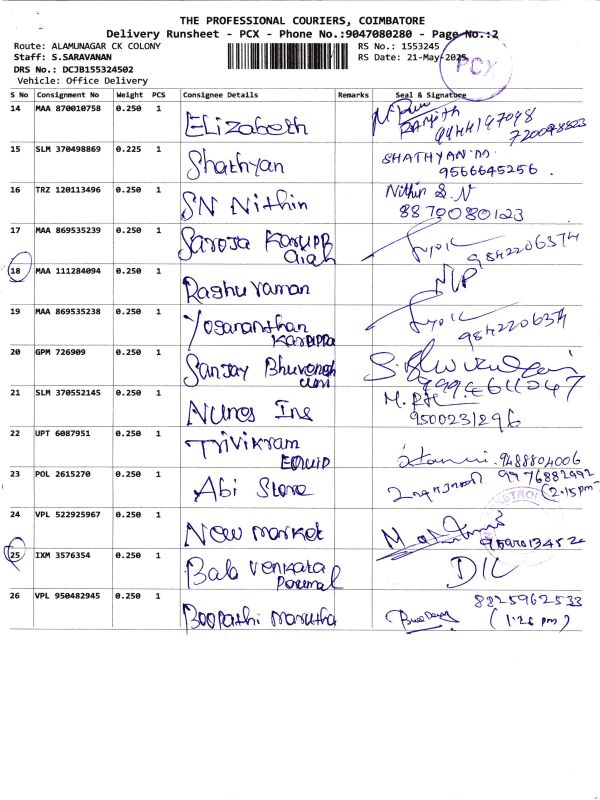 THE PROFESSIONAL COURIERS, COIMBATORE
Delivery Runsheet - PCX - Phone No.:9047080280 - Page No.:2
Route: ALAMUNAGAR CK COLONY
RS No.: 1553245
Staff: S.SARAVANAN
RS Date: 21-May-2025
PCX
DRS No.: DCJB155324502
Vehicle: Office Delivery
S No Consignment No Weight PCS Consignee Details Remarks Seal & Signature
14 MAA 870010758 0.250 1 Elizabeth Ranjith
15 SLM 370498869 0.225 1 Shathyan SHATHYAN
9566645256
16 TRZ 120113496 0.250 1 SN Nithin Nithin S.N
8870080123
17 MAA 869535239 0.250 1 Saroja Karupp
aiah 9842206374
18 MAA 111284094 0.250 1 Raghu raman
19 MAA 869535238 0.250 1 Yogananthan
Karuppa 9842206374
20 GPM 726909 0.250 1 Sanjay Bhuvanesh
21 SLM 370552145 0.250 1 Nuros Ins
9500231296
22 UPT 6087951 0.250 1 Trivikram 9488804006
Equip
23 POL 2615270 0.250 1 Abi Store 9976882992
(2:15pm)
24 VPL 522925967 0.250 1 New market
25 IXM 3576354 0.250 1 Bala Venkata D/L
Perumal
26 VPL 950482945 0.250 1 Boopathi Marutha 8825962533
(1:26 pm)